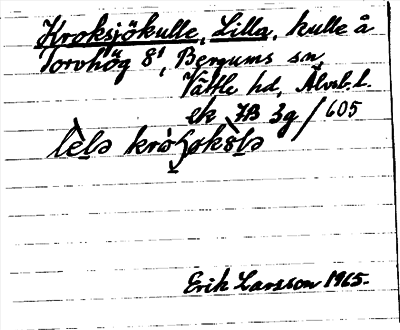 Kroksjökulle, Lilla, kulle å
Torvhög 8¹, Bergums sn,
Vättle hd, Älvsb. l.
ek JB 3g/605
Erik Larsson 1965.